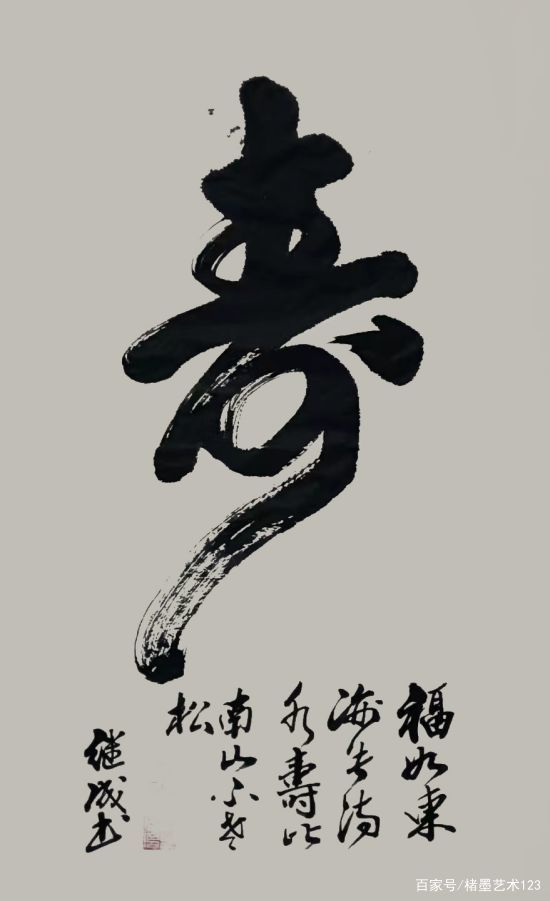 寿
福如东
海长流
水寿比
南山不老
松
继成书
百家号/楮墨艺术123